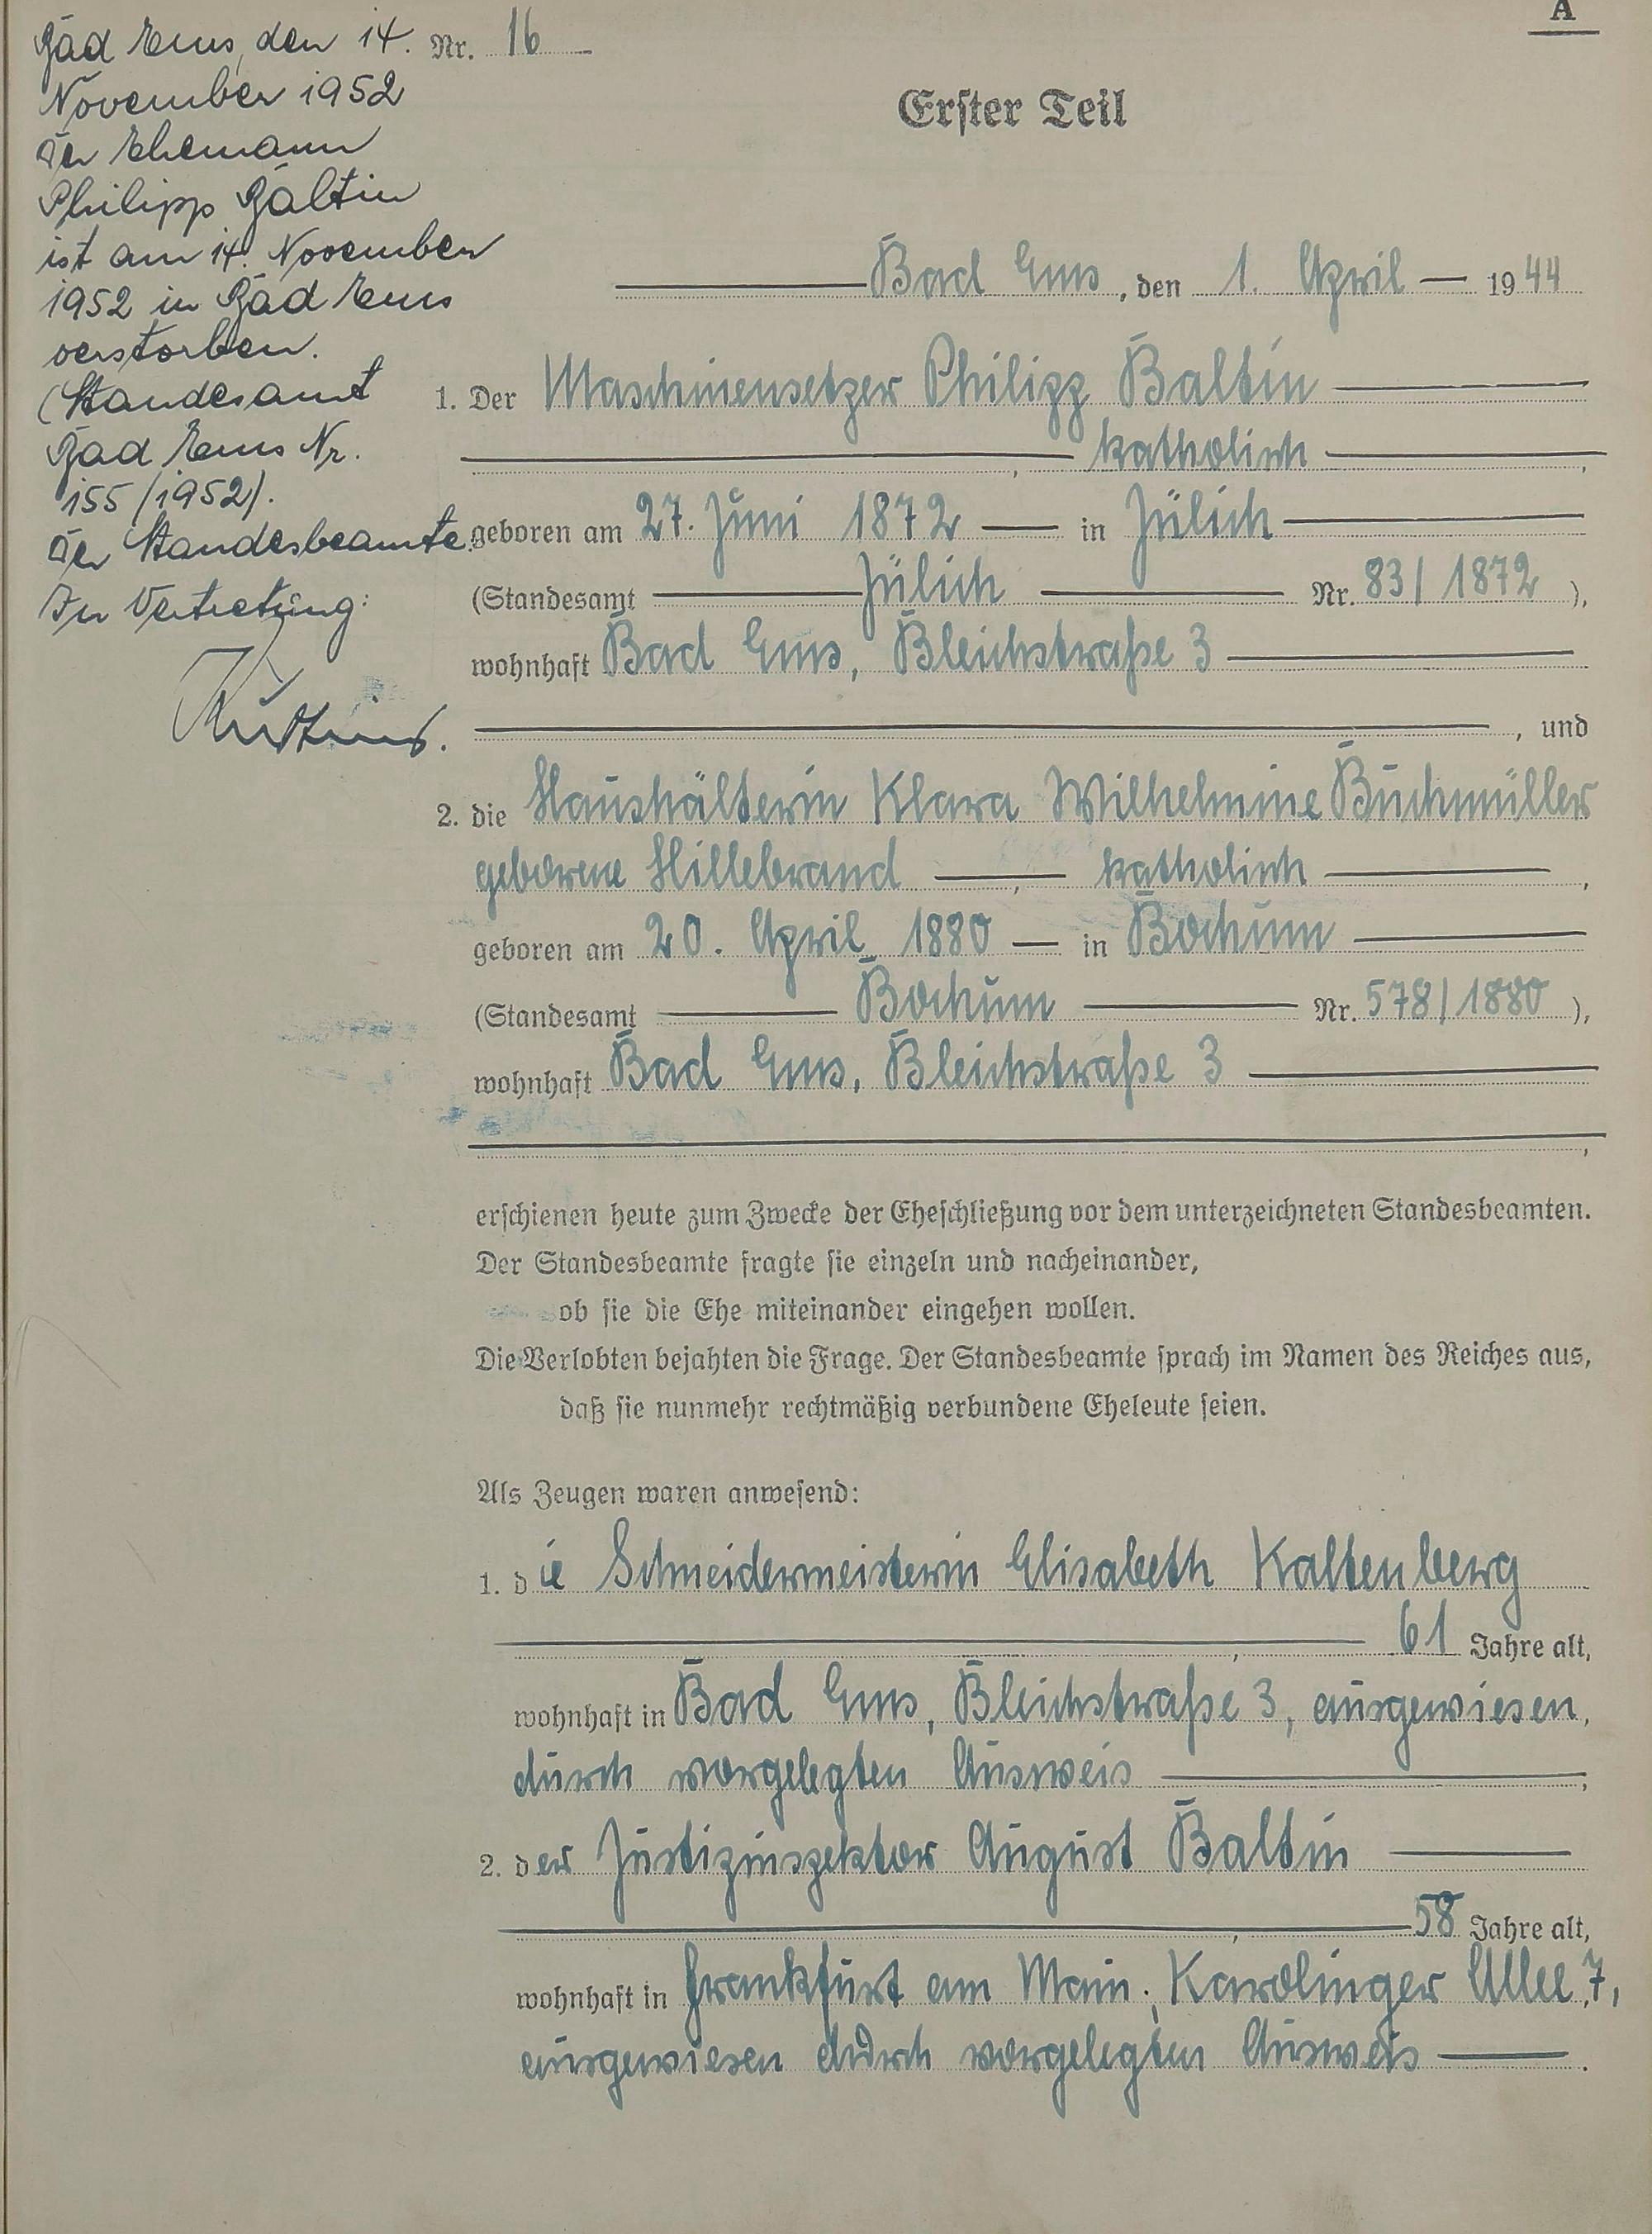 A
Nr. 16
Erster Teil
Bad Ems, den 14.
November 1952
Der Ehemann
Philipp Baltin
ist am 14. November
1952 in Bad Ems
verstorben.
(Standesamt
Bad Ems Nr.
155/1952).
Der Standesbeamte
In Vertretung:
Bad Ems, den 1. April 1944
1. Der Maschinensetzer Philipp Baltin
, katholisch,
geboren am 27. Juni 1872 in Jülich
(Standesamt Jülich Nr. 83/1872),
wohnhaft Bad Ems, Bleichstraße 3
, und
2. die Haushälterin Klara Wilhelmine Buchmüller
geborene Hillebrand, katholisch,
geboren am 20. April 1880 in Bochum
(Standesamt Bochum Nr. 578/1880),
wohnhaft Bad Ems, Bleichstraße 3
,
erschienen heute zum Zwecke der Eheschließung vor dem unterzeichneten Standesbeamten.
Der Standesbeamte fragte sie einzeln und nacheinander,
ob sie die Ehe miteinander eingehen wollen.
Die Verlobten bejahten die Frage. Der Standesbeamte sprach im Namen des Reiches aus,
daß sie nunmehr rechtmäßig verbundene Eheleute seien.
Als Zeugen waren anwesend:
1. die Schneidermeisterin Elisabeth Kaltenberg
, 61 Jahre alt,
wohnhaft in Bad Ems, Bleichstraße 3, ausgewiesen,
durch vorgelegten Ausweis;
2. der Justizinspektor August Baltin
, 58 Jahre alt,
wohnhaft in Frankfurt am Main, Karolinger Allee 7,
ausgewiesen durch vorgelegten Ausweis.